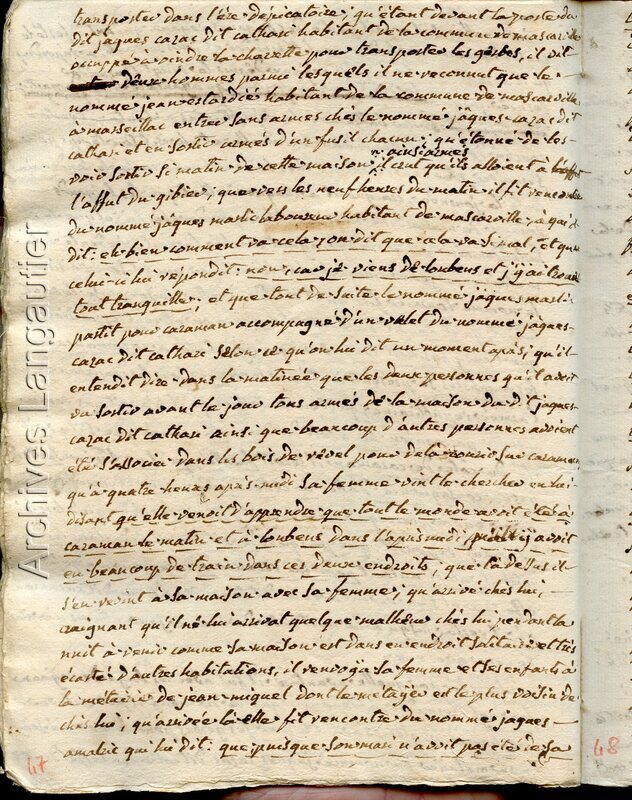 transporter dans l'ère dépicatoire; qu'étant devant la porte du
dit jâques cazac dit cathari habitant de la commune de mascarville
occuppé à joindre la charette pour transporter les gerbes, il vit
deux hommes parmi lesquels il ne reconnut que le
nommé jean estardié habitant de la commune de mascarville
à marseillac entrer sans armes chez le nommé jâques cazac dit
cathari et en sortir armés d'un fusil chacun; qu'étonné de les
voir sortir si matin de cette maison et ainsi armés il crut qu'ils alloient à
l'affut du gibier; que vers les neuf heures du matin il fit rencontre
du nommé jâques masri laboureur habitant de mascarville, à qui il
dit: eh bien comment va cela, on dit que cela va si mal, et que
celui-ci lui repondit: non, car je viens de loubens et j'y ai trouvé
tout tranquille; et que tout de suite le nommé jâques masri
partit pour caraman accompagné d'un valet du nommé jâques
cazac dit cathari selon ce qu'on lui dit un moment après; qu'il
entendit dire dans la matinée que les deux personnes qu'il avoit
vu sortir avant le jour tous armés de la maison du dit jâques
cazac dit cathari ainsi que beaucoup d'autres personnes avoient
été s'associer dans les bois de revel pour de là courir sur caraman,
qu'à quatre heures après-midi sa femme vint le chercher en lui
disant qu'elle venoit d'apprendre que tout le monde avoit été à
caraman le matin et à loubens dans l'après midi qu'il y avoit
eu beaucoup de train dans ces deux endroits; que là dessus il
s'en revint à sa maison avec sa femme; qu'arrivé chès lui,
craignant qu'il ne lui arrivat quelque malheur chès lui pendant la
nuit à venir comme sa maison est dans un endroit solitaire et très
écarté d'autres habitations, il renvoya sa femme et ses enfants à
la métairie de jean miquel dont le métayer est le plus voisin de
chès lui; qu'arrivée là elle fit rencontre du nommé jâques
amalric qui lui dit: que puisque son mari n'avoit pas été de sa
47
48
Archives Langautier